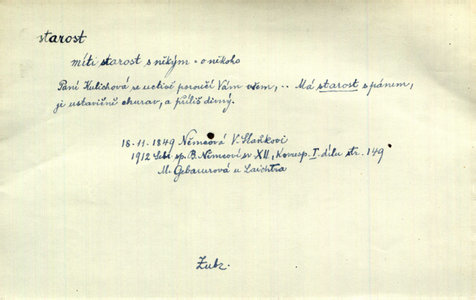 starost
míti starost s někým - o někoho
Paní Kulichová se uctivě poroučí Vám všem, .. Má starost s pánem,
je ustavičně churav, a příliš divný.
18-11-1849 Němcová V. Staňkovi
1912 Sebr sp. B. Němcové sv XII, Koresp. I. dílu str. 149
M. Gebauerová u Laichtra
Zub.